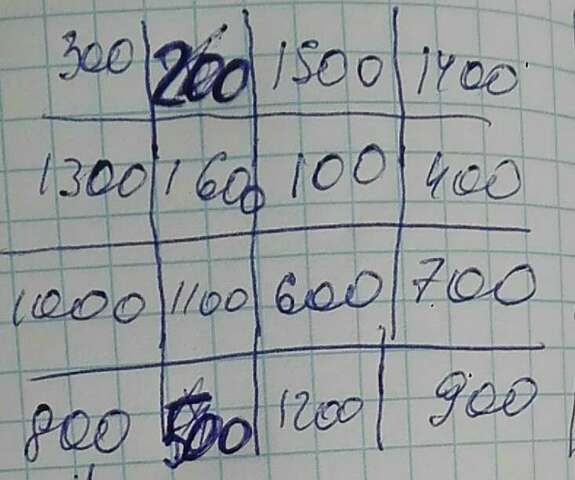 300 200 1500 1400
1300 1600 100 400
1000 1100 600 700
800 500 1200 900